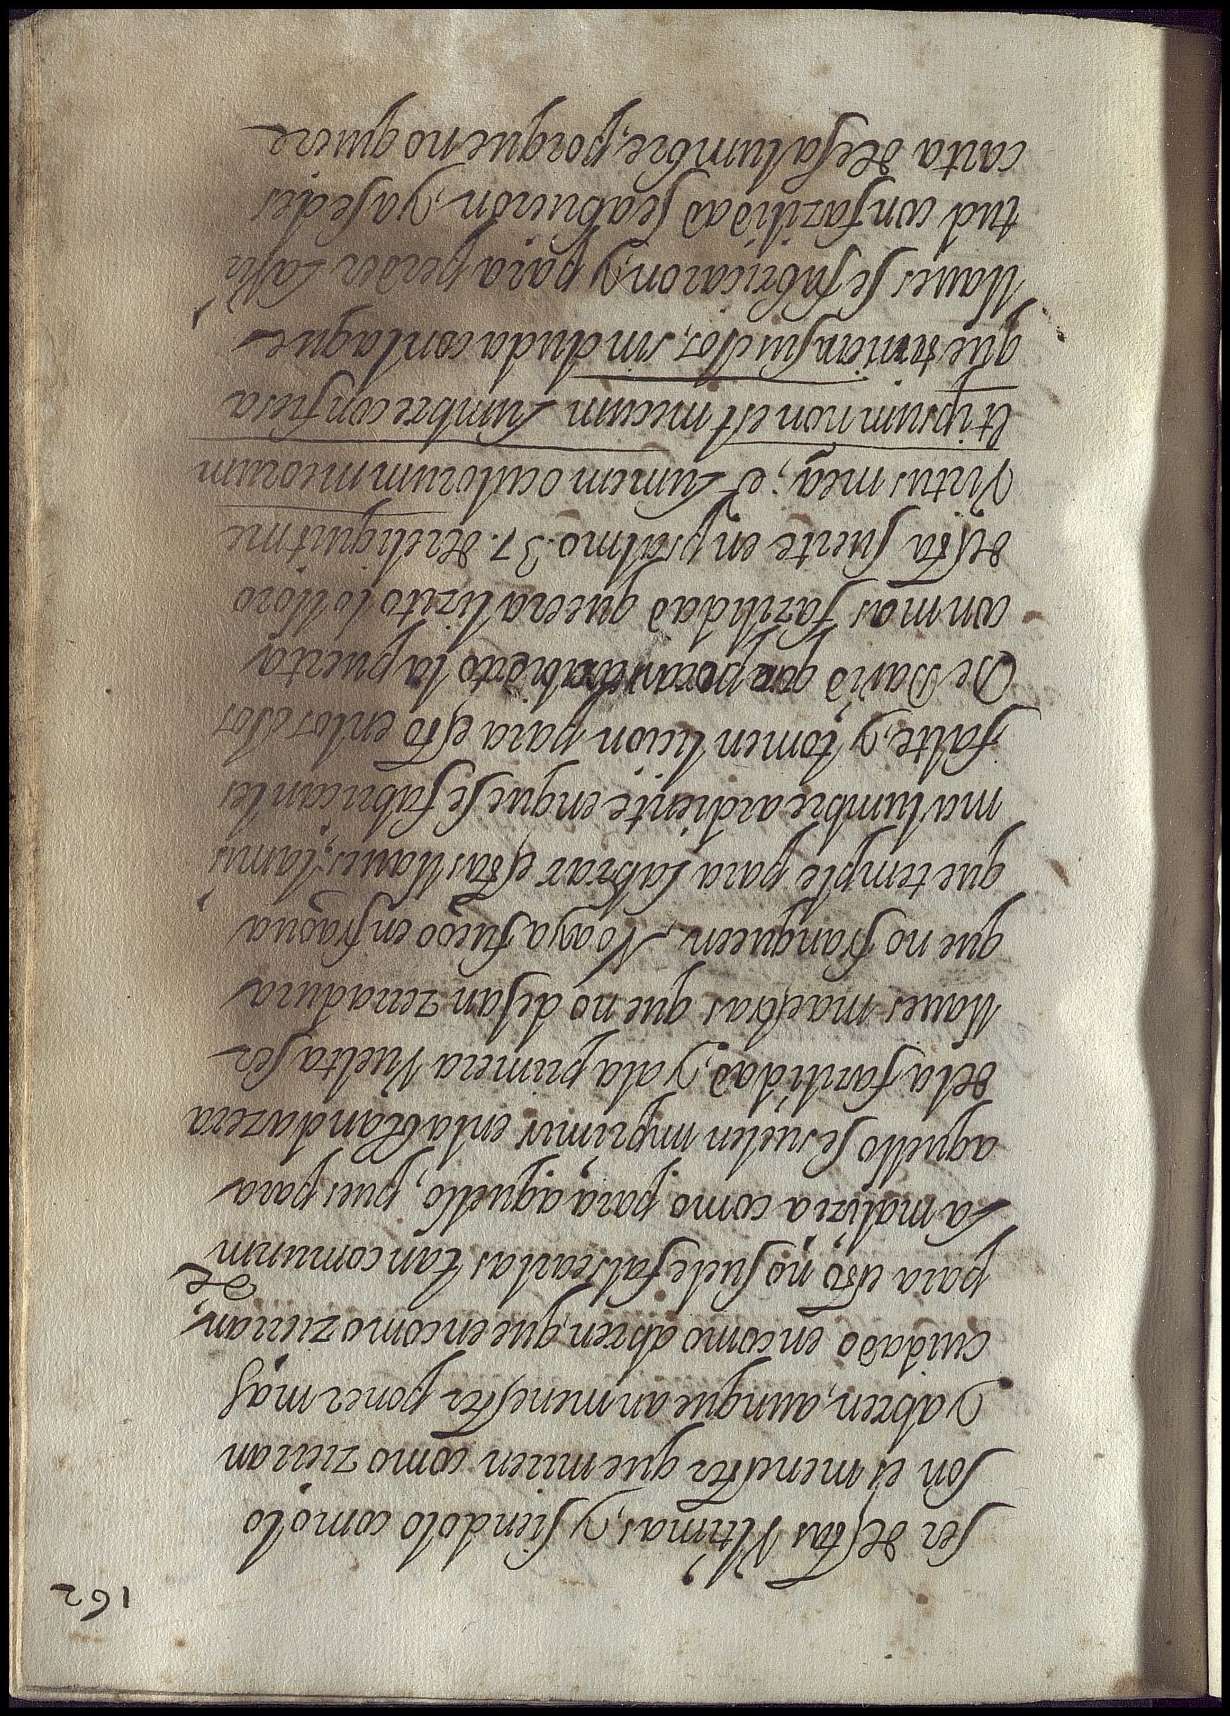 162
ser destas Vltimas, y siendolo como lo
son es menester que miren como zierran
y abren, aunque an menester poner mas
cuidado en como abren, que en como zierran,
para esto no suele falsearlas tan comunm.te
La malizia como para aquello, pues para
aquello se suelen imprimir en la blanda zera
de la santidad, y a la primera Vuelta ser
llaues maestras que no dejan zerradura
que no franqueen. No aya fuego en fragua
que temple para labrar estas llaues, la mis
ma lumbre ardiente en que se fabrican les
falte, y tomen licion para esto en los ojos
De Dauid abierto la puerta
con mas fazilidad que era lizito lo lloro
desta suerte en psalmo. 37. dereliquit me
Virtus mea; et Lumen oculorum meorum
et ipsum non est mecum Lumbre confiesa
que tenian sus ojos, sin duda con la que
llaues se fabricaron, y para perder La Vir
tud con fazilidad se abrieron, ya se des
carta de sa lumbre, porque no quiere